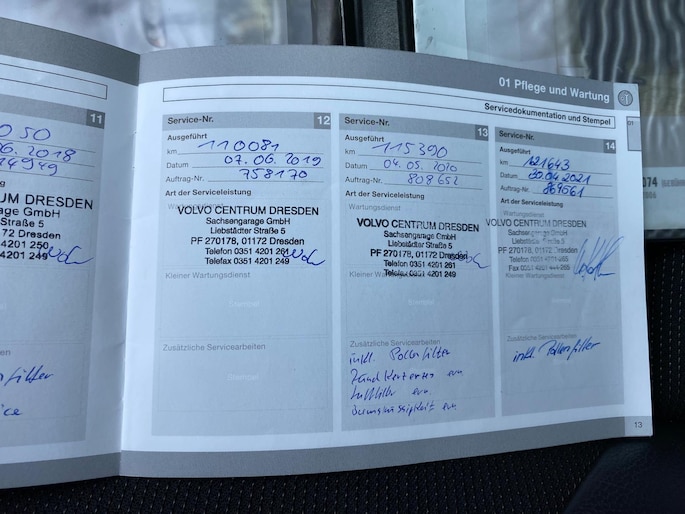 11
050
06.2018
14949
ZENTRUM DRESDEN
Sachsengarage GmbH
Liebstädter Straße 5
01172 Dresden
4201 250
4201 249
01 Pflege und Wartung
Servicedokumentation und Stempel
01
Service-Nr. 12
Ausgeführt
km 110081
Datum 07.06.2019
Auftrag-Nr. 758170
Art der Serviceleistung
Wartungsdienst
VOLVO CENTRUM DRESDEN
Sachsengarage GmbH
Liebstädter Straße 5
PF 270178, 01172 Dresden
Telefon 0351 4201 261
Telefax 0351 4201 249
Kleiner Wartungsdienst
Zusätzliche Servicearbeiten
Service-Nr. 13
Ausgeführt
km 115390
Datum 04.05.2020
Auftrag-Nr. 808652
Art der Serviceleistung
Wartungsdienst
VOLVO CENTRUM DRESDEN
Sachsengarage GmbH
Liebstädter Straße 5
PF 270178, 01172 Dresden
Telefon 0351 4201 261
Telefax 0351 4201 249
Kleiner Wartungsdienst
Zusätzliche Servicearbeiten
inkl. Pollenfilter
Zündkerzen ern
Luftfilter ern.
Service-Nr. 14
Ausgeführt
km 121643
Datum 30.04.2021
Auftrag-Nr. 869561
Art der Serviceleistung
Wartungsdienst
VOLVO CENTRUM DRESDEN
Sachsengarage GmbH
Liebstädter Straße 5
PF 270178, 01172 Dresden
Telefon 0351 4201-261
Fax 0351 4201-249
Kleiner Wartungsdienst
Zusätzliche Servicearbeiten
inkl. Pollenfilter
13
074